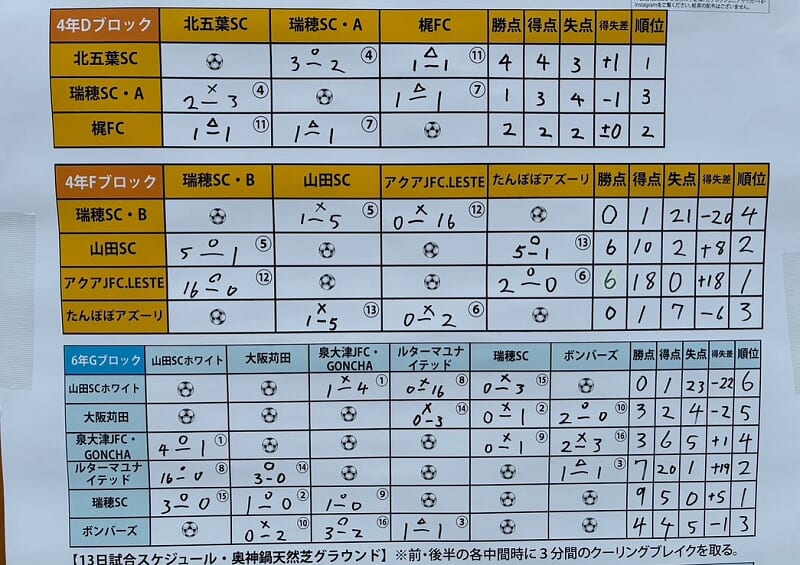 Instagramをご覧ください。
4年Dブロック 北五葉SC 瑞穂SC・A 梶FC 勝点 得点 失点 得失差 順位
北五葉SC 3 ○ 2 ④ 1 △ 1 ⑪ 4 4 3 +1 1
瑞穂SC・A 2 × 3 ④ 1 △ 1 ⑦ 1 3 4 -1 3
梶FC 1 △ 1 ⑪ 1 △ 1 ⑦ 2 2 2 ±0 2
4年Fブロック 瑞穂SC・B 山田SC アクアJFC.LESTE たんぽぽアズーリ 勝点 得点 失点 得失差 順位
瑞穂SC・B 1 × 5 ⑤ 0 × 16 ⑫ 0 1 21 -20 4
山田SC 5 ○ 1 ⑤ 5 ○ 1 ⑬ 6 10 2 +8 2
アクアJFC.LESTE 16 ○ 0 ⑫ 2 ○ 0 ⑥ 6 18 0 +18 1
たんぽぽアズーリ 1 × 5 ⑬ 0 × 2 ⑥ 0 1 7 -6 3
6年Gブロック 山田SCホワイト 大阪苅田 泉大津JFC・GONCHA ルターマユナイテッド 瑞穂SC ボンバーズ 勝点 得点 失点 得失差 順位
山田SCホワイト 1 × 4 ① 0 × 16 ⑧ 0 × 3 ⑮ 0 1 23 -22 6
大阪苅田 0 × 3 ⑭ 0 × 1 ② 2 ○ 0 ⑩ 3 2 4 -2 5
泉大津JFC・GONCHA 4 ○ 1 ① 0 × 1 ⑨ 2 × 3 ⑯ 3 6 5 +1 4
ルターマユナイテッド 16 ○ 0 ⑧ 3 ○ 0 ⑭ 1 △ 1 ③ 7 20 1 +19 2
瑞穂SC 3 ○ 0 ⑮ 1 ○ 0 ② 1 ○ 0 ⑨ 9 5 0 +5 1
ボンバーズ 0 × 2 ⑩ 3 ○ 2 ⑯ 1 △ 1 ③ 4 4 5 -1 3
【13日試合スケジュール・奥神鍋天然芝グラウンド】 ※前・後半の各中間時に3分間のクーリングブレイクを取る。